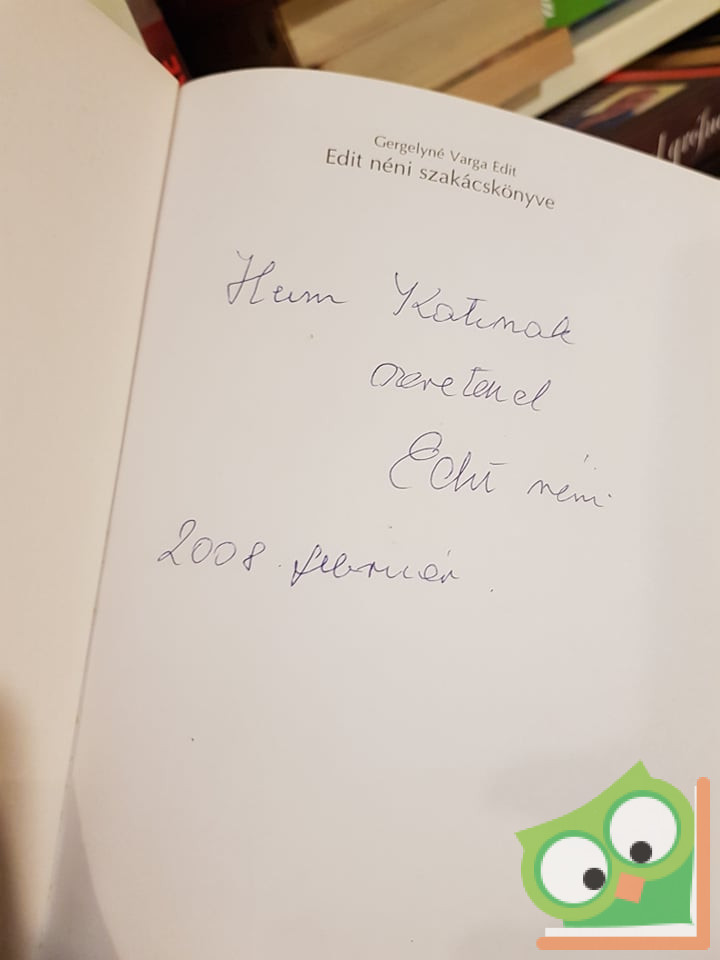 Gergelyné Varga Edit
Edit néni szakácskönyve
Katinak
szeretettel
Edit néni
2008. február.